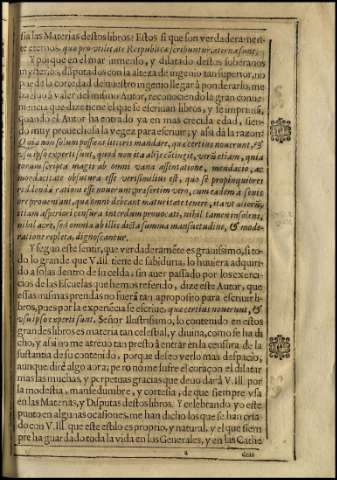 sia las Materias destos libros: Estos si que son verdaderamente
te eternos, qua pro vtilitate Reipublicæ scribuntur, æterna sunt.
Y porque en el mar inmenso, y dilatado destos soberanos
mysterios, disputados con la alteza de ingenio tan superior, no
puede la cortedad de nuestro ingenio llegar à ponderarlo, me
es fuerça valer del mismo Autor, reconociendo la gran conue-
niencia que dize tiene el que se escriuan libros, y se impriman,
quando el Autor ha entrado ya en mas crecida edad, sien-
do muy prouechosa la vegez para escriuir, y assi dà la razon:
Quia non solum possunt litteris mandare, quæ certius nouerunt, &
vsu ipso experti sunt, quod non ita assequitingit, verùm etiam, quia
eorum scripta magis ab omni vana assentatione, mendacio, ac
mordacitate absoluta esse verisimilius est, quò se propinquiores
reddenda rationi esse nouerunt præsertim vero, cum eadem à sente
ore proueniant, quæ omni debeant maturitate tenere, ita vt auiorũ
etiam asperiori censura interdum prouocati, nihil tamen insolens,
nihil acre, sed omnia ab illis dicta summa mansuetudine, & mode-
ratione repleta, dignoscantur.
Y segun este sentir, que verdaderamẽte es grauissimo, si to-
do lo grande que V.Ill. tiene de sabiduria, lo huuiera adquiri-
do à solas dentro de su celda, sin auer passado por los exerci-
cios de las Escuelas que hemos referido, dize este Autor, que
essas mismas prendas no fuerã tan à proposito para escriuir li-
bros, pues por la experiẽcia se escriue, quæ certius nouerunt, &
vsu ipso experti sunt. Señor Ilustrissimo, lo contenido en estos
grandes libros es materia tan celestial, y diuina, como se ha di
cho, y assi no me atreuo tan presto à entrar en la censura de la
sustancia de su contenido, porque deseo verlo mas despacio,
aunque dirè algo aora; pero no me sufre el coraçon el dilatar
mas las muchas, y perpetuas gracias que deuo dar à V.Ill. por
la modestia, mansedumbre, y cortesia, de que siempre vsa
en las Materias, y Disputas destos libros. Y celebrando yo este
punto en algunas ocasiones, me han dicho los que se han cria-
do con V.Ill. que este estilo es proprio, y natural, y el que siem
pre ha guardado toda la vida en los Generales, y en las Cathe